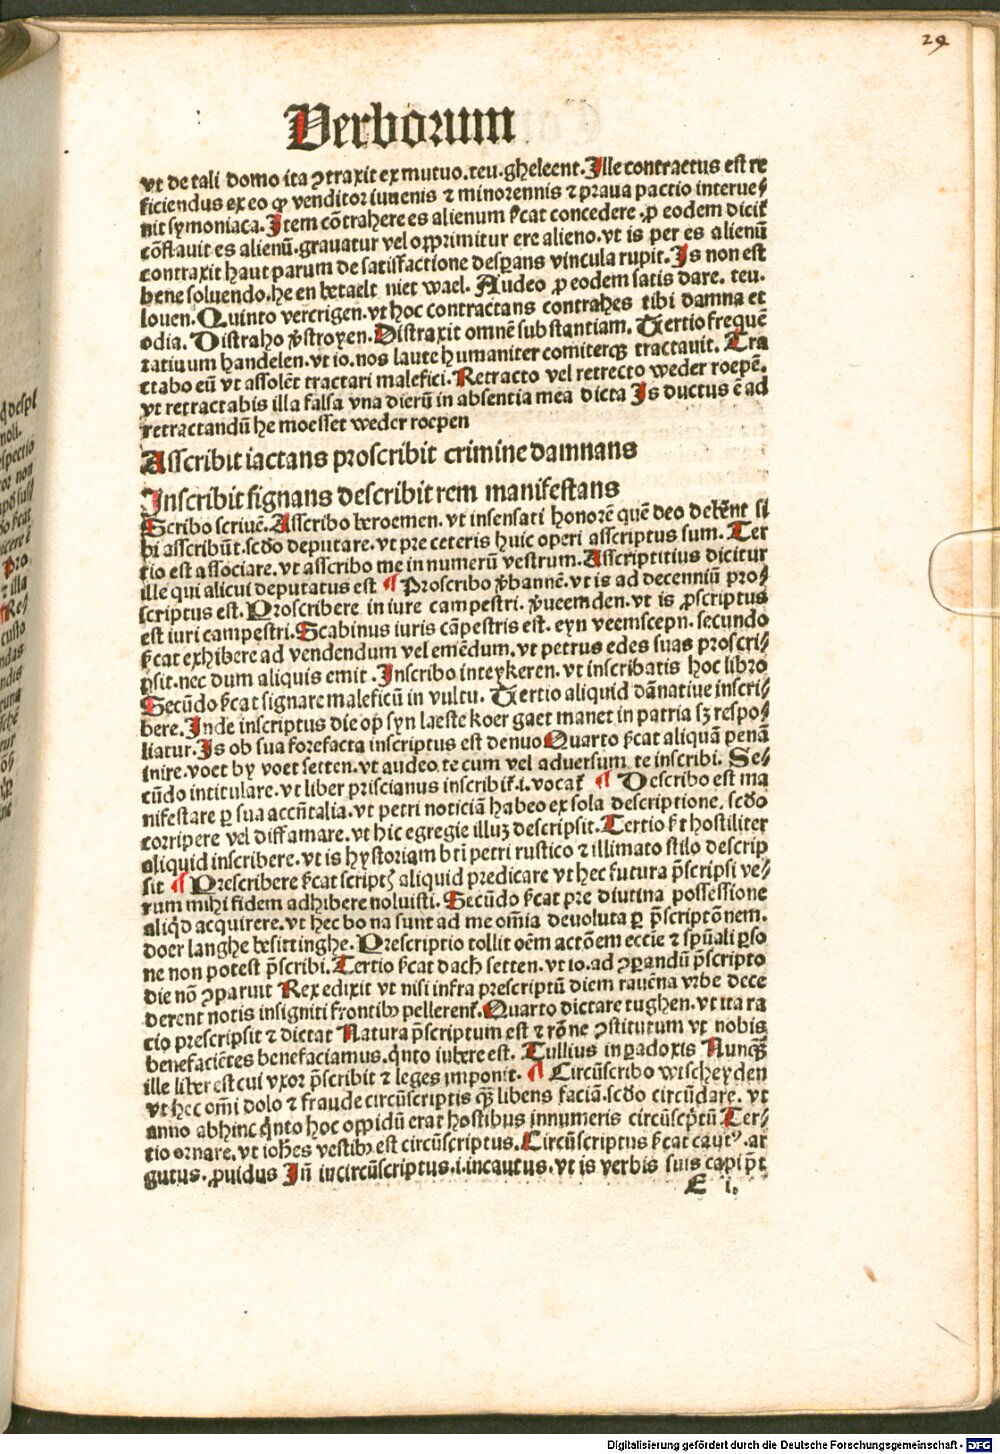 29
Verborum
vt de tali domo ita ↄtraxit ex mutuo. teu. gheleent. Ille contractus est re
ficiendus ex eo ꝙ venditor iuuenis ⁊ minorennis ⁊ praua pactio interue⸗
nit symoniaca. Item cōtrahere es alienum s̄cat concedere. ꝓ eodem dicit̄
cōflauit es alienū. grauatur vel opprimitur ere alieno. vt is per es alienū
contraxit haut parum de satisfactione desꝑans vincula rupit. Is non est
bene soluendo. he en betaelt niet wael. Audeo ꝓ eodem satis dare. teu.
louen. Quinto vercrigen. vt hoc contractans contrahes tibi damna et
odia. Distraho v̄stroyen. Distraxit omnē substantiam. Tertio frequē
tatiuum handelen. vt io. nos laute humaniter comiterqꝫ tractauit. Tra
ctabo eū vt assolēt tractari malefici. Retracto vel retrecto weder roepē.
vt retractabis illa falsa vna dierū in absentia mea dicta Is ductus ē ad
retractandū he moesset weder roepen
Asscribit iactans proscribit crimine damnans
Inscribit signans describit rem manifestans
Scribo scriuē. Asscribo beroemen. vt insensati honorē quē deo debēnt si
bi asscribūt. scd̄o deputare. vt pre ceteris huic operi asscriptus sum. Ter
tio est associare. vt asscribo me in numerū vestrum. Asscriptitius dicitur
ille qui alicui deputatus est ¶ Proscribo v̄bannē. vt is ad decenniū pro⸗
scriptus est. Proscribere in iure campestri. v̄ueemden. vt is ꝓscriptus
est iuri campestri. Scabinus iuris cāpestris est. eyn veemscepn. secundo
s̄cat exhibere ad vendendum vel emēdum. vt petrus edes suas proscri⸗
psit. nec dum aliquis emit. Inscribo inteykeren. vt inscribatis hoc libro
Secūdo s̄cat signare maleficū in vultu. Tertio aliquid dānatiue inscri⸗
bere. Inde inscriptus die op syn laeste koer gaet manet in patria sꝫ respo⸗
liatur. Is ob sua forefacta inscriptus est denuo Quarto s̄cat aliquā penā
inire. voet by voet setten. vt audeo te cum vel aduersum te inscribi. Se⸗
cūdo intitulare. vt liber priscianus inscribit̄. i. vocat̄ ¶ Describo est ma
nifestare ꝑ sua accn̄talia. vt petri noticiā habeo ex sola descriptione. scd̄o
corripere vel diffamare. vt hic egregie illuꝫ descripsit. Tertio s̄t hostiliter
aliquid inscribere. vt is hystoriam bt̄i petri rustico ⁊ illimato stilo descrip
sit ¶ Prescribere s̄cat scriptꝭ aliquid predicare vt hec futura p̄scripsi ve⸗
rum mihi fidem adhibere noluisti. Secūdo s̄cat pre diutina possessione
aliq̄d acquirere. vt hec bona sunt ad me om̄ia deuoluta ꝑ p̄scriptōnem.
doer langhe besittinghe. Prescriptio tollit oēm actōem eccie ⁊ spūali ꝑso
ne non potest p̄scribi. Tertio s̄cat dach setten. vt io. ad ↄꝑandū p̄scripto
die nō ↄparuit Rex edixit vt nisi infra prescriptū diem rauēna vrbe dece
derent notis insigniti frontibꝫ pellerent̄. Quarto dictare tughen. vt ita ra
tio prescripsit ⁊ dictat Natura p̄scriptum est ⁊ rōne ↄstitutum vt nobis
benefaciētes benefaciamus. q̄nto iubere est. Tullius in ꝑadoxis Nunqꝫ
ille liber est cui vxor p̄scribit ⁊ leges imponit. ¶ Circūscribo wischeyden
vt hec om̄i dolo ⁊ fraude circūscriptis qꝫ libens faciā. scd̄o circūdare. vt
anno abhinc q̄nto hoc oppidū erat hostibus innumeris circūscp̄tū Ter⸗
tio ornare. vt ioh̄es vestibꝫ est circūscriptus. Circūscriptus s̄cat cautꝰ. ar
gutus. ꝓuidus In̄ incircūscriptus. i. incautus. vt is verbis suis capi p̄t
E i.
Digitalisierung gefördert durch die Deutsche Forschungsgemeinschaft - DFG